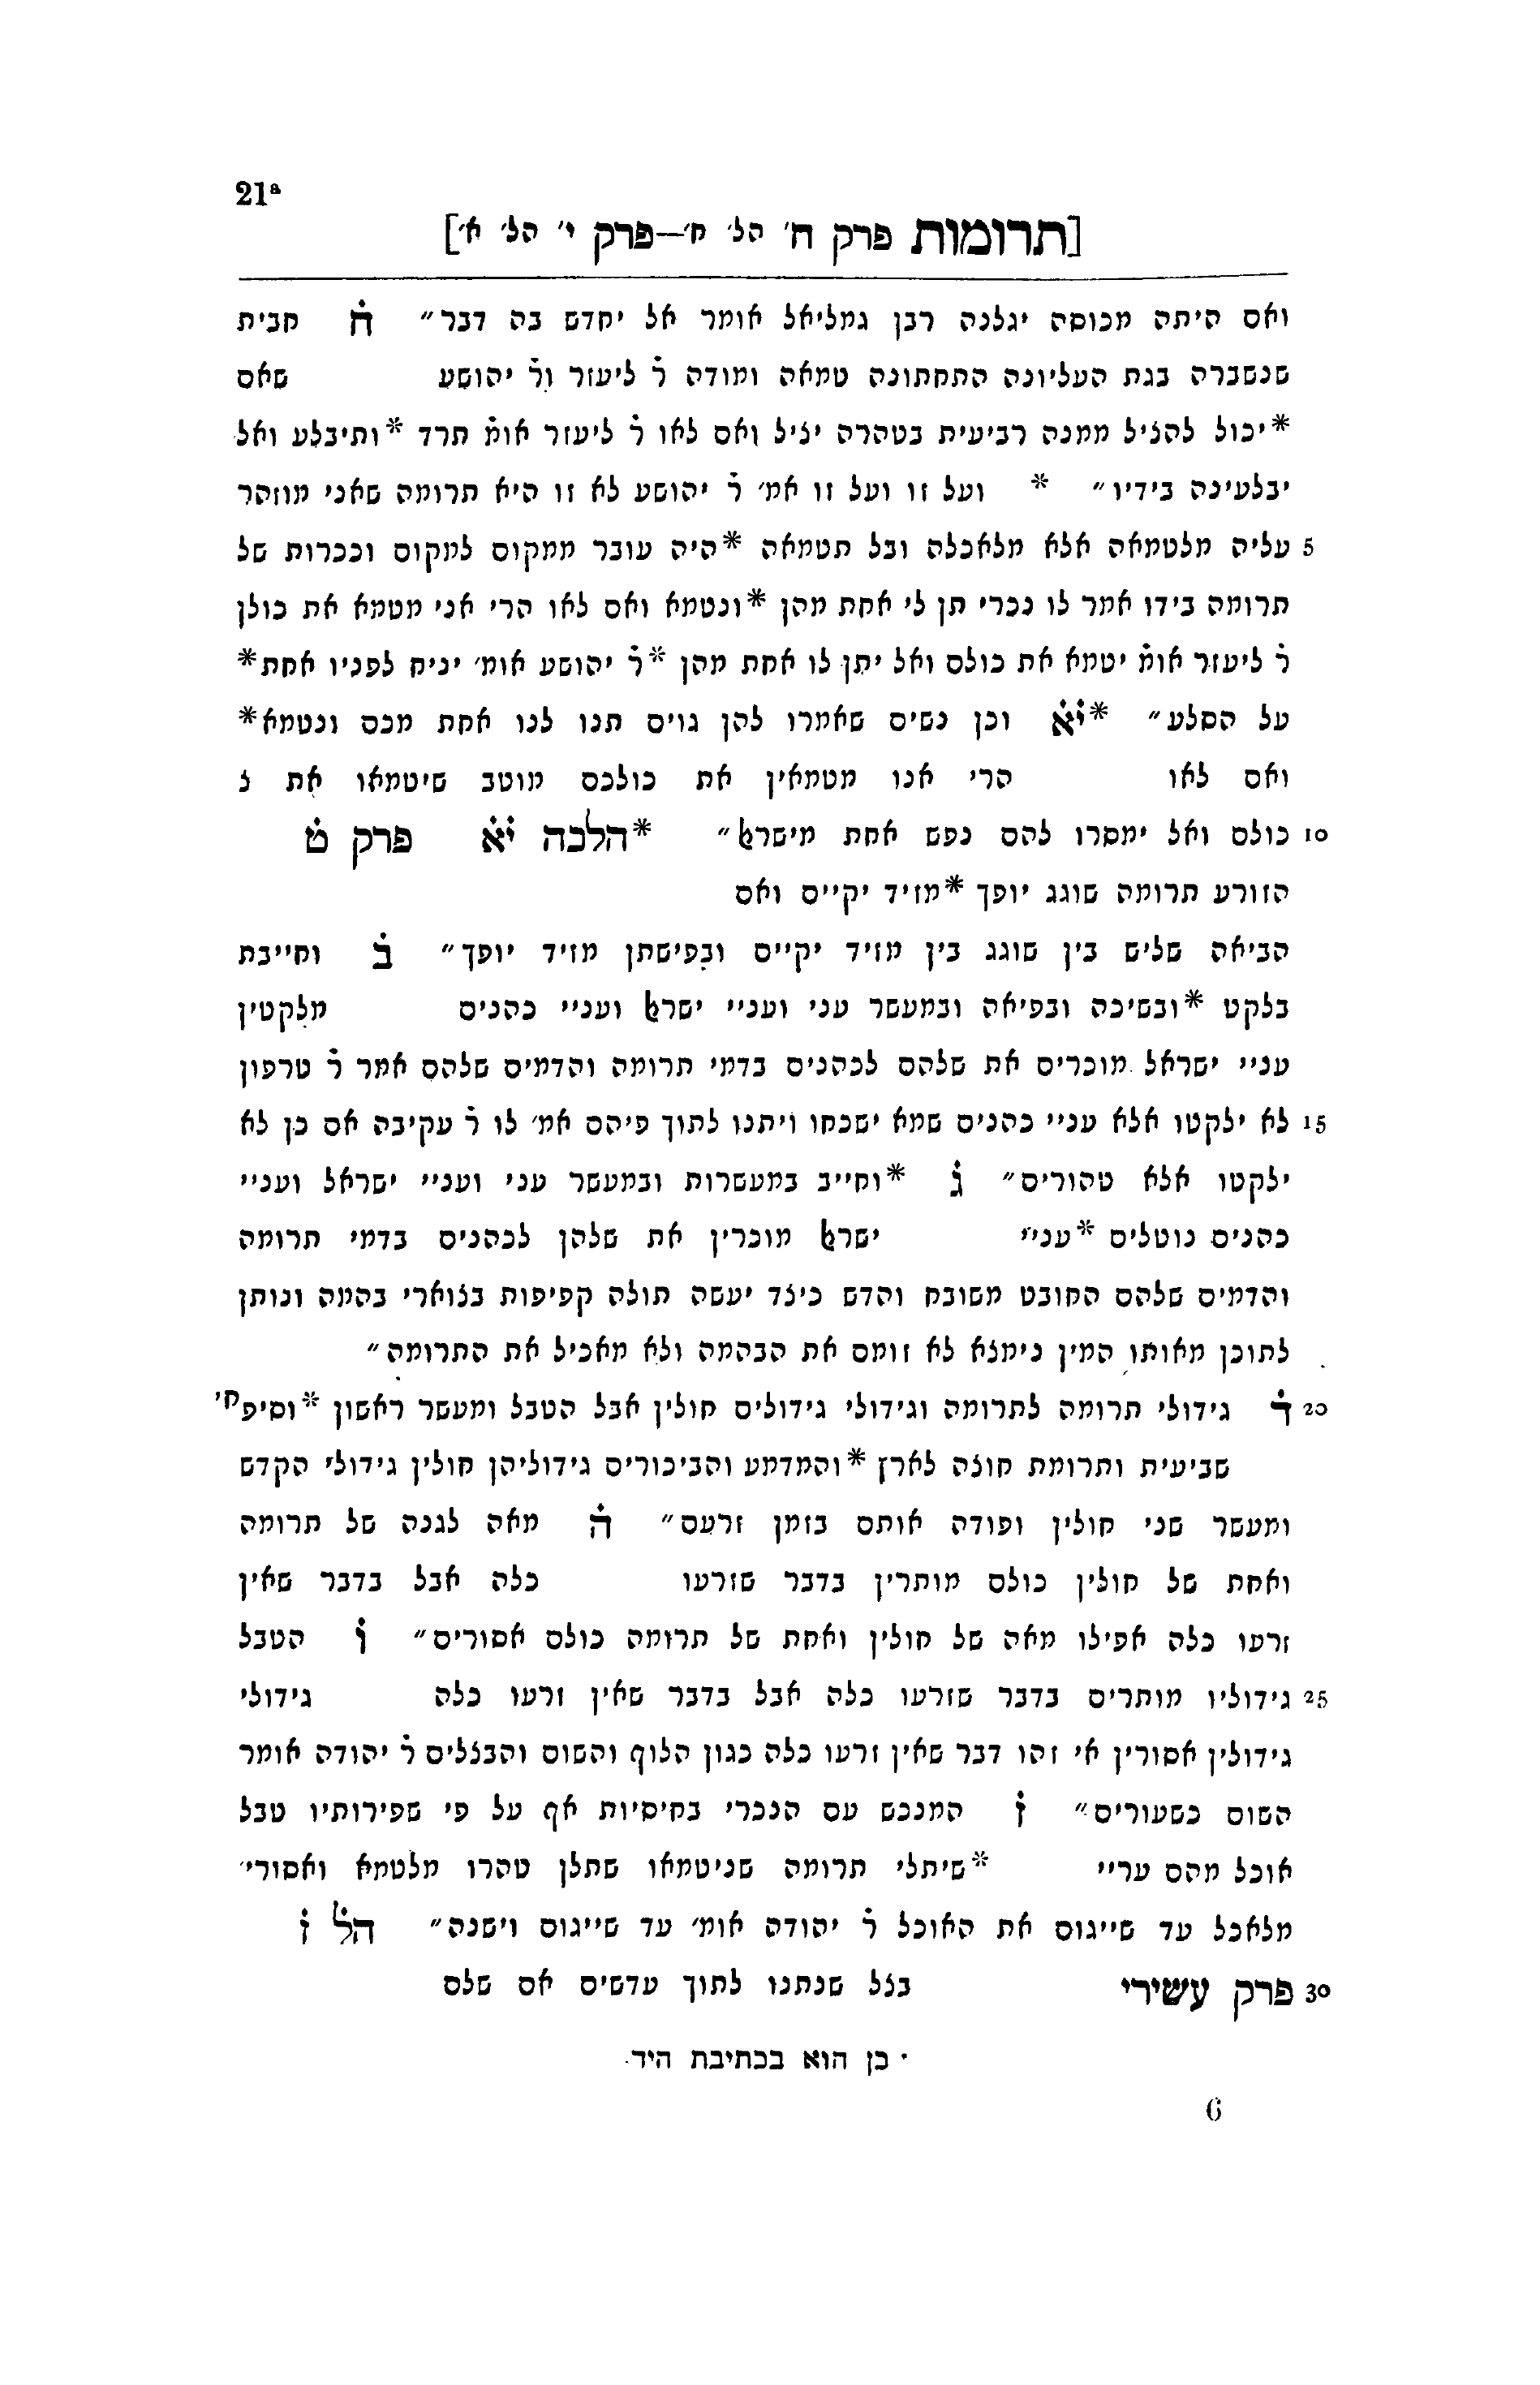 21a
[תרומות פרק ח' הל' ח'—פרק י' הל' א']
ואם היתה מכוסה יגלנה רבן גמליאל אומר אל יחדש בה דבר״ ח̇ חבית
שנשברה בגת העליונה התחתונה טמאה ומודה ר̇ ליעזר ור̇ יהושע שאם
*יכול להציל ממנה רביעית בטהרה יציל ואם לאו ר̇ ליעזר אומ̇ תרד *ותיבלע ואל
יבלעינה בידיו״ * ועל זו ועל זו אמ׳ ר̇ יהושע לא זו היא תרומה שאני מוזהר
5 עליה מלטמאה אלא מלאכלה ובל תטמאה *היה עובר ממקום למקום וככרות של
תרומה בידו אמר לו נכרי תן לי אחת מהן *ונטמא ואם לאו הרי אני מטמא את כולן
ר̇ ליעזר אומ̇ יטמא את כולם ואל יתן לו אחת מהן *ר̇ יהושע אומ׳ יניח לפניו אחת*
על הסלע״ *י̇א̇ וכן נשים שאמרו להן גוים תנו לנו אחת מכם ונטמא*
ואם לאו הרי אנו מטמאין את כולכם מוטב שיטמאו את נ
10 כולם ואל ימסרו להם נפש אחת מישרﭏ״ *הלכה י̇א̇ פרק ט̇
הזורע תרומה שוגג יופך *מזיד יקיים ואם
הביאה שליש בין שוגג בין מזיד יקיים ובפישתן מזיד יופך״ ב̇ וחייבת
בלקט *ובשיכה ובפיאה ובמעשר עני ועניי ישרﭏ ועניי כהנים מלקטין
עניי ישראל מוכרים את שלהם לכהנים בדמי תרומה והדמים שלהם אמר ר̇ טרפון
15 לא ילקטו אלא עניי כהנים שמא ישכחו ויתנו לתוך פיהם אמ׳ לו ר̇ עקיבה אם כן לא
ילקטו אלא טהורים״ ג̇ *וחייב במעשרות ובמעשר עני ועניי ישראל ועניי
כהנים נוטלים *עניי ישרﭏ מוכרין את שלהן לכהנים בדמי תרומה
והדמים שלהם החובט משובח והדש כיצד יעשה תולה קפיפות בצוארי בהמה ונותן
לתוכן מאותו המין נימצא לא זומם את הבהמה ולא מאכיל את התרומה״
20 ד̇ גידולי תרומה לתרומה וגידולי גידולים חולין אבל הטבל ומעשר ראשון *וסיפח׳
שביעית ותרומת חוצה לארץ *והמדמע והביכורים גידוליהן חולין גידולי הקדש
ומעשר שני חולין ופודה אותם בזמן זרעם״ ה̇ מאה לגנה של תרומה
ואחת של חולין כולם מותרין בדבר שזרעו כלה אבל בדבר שאין
זרעו כלה אפילו מאה של חולין ואחת של תרומה כולם אסורים״ ו̇ הטבל
25 גידוליו מותרים בדבר שזרעו כלה אבל בדבר שאין זרעו כלה גידולי
גידולין אסורין אי זהו דבר שאין זרעו כלה כגון הלוף והשום והבצלים ר̇ יהודה אומר
השום כשעורים״ ז̇ המנכש עם הנכרי בחיסיות אף על פי שפירותיו טבל
אוכל מהם עריי *שיתלי תרומה שניטמאו שתלן טהרו מלטמא ואסורי׳
מלאכל עד שייגום את האוכל ר̇ יהודה אומ׳ עד שייגום וישנה״ הל̇ ז̇
30 פרק עשירי בצל שנתנו לתוך עדשים אם שלם
· כן הוא בכתיבת היד.
6